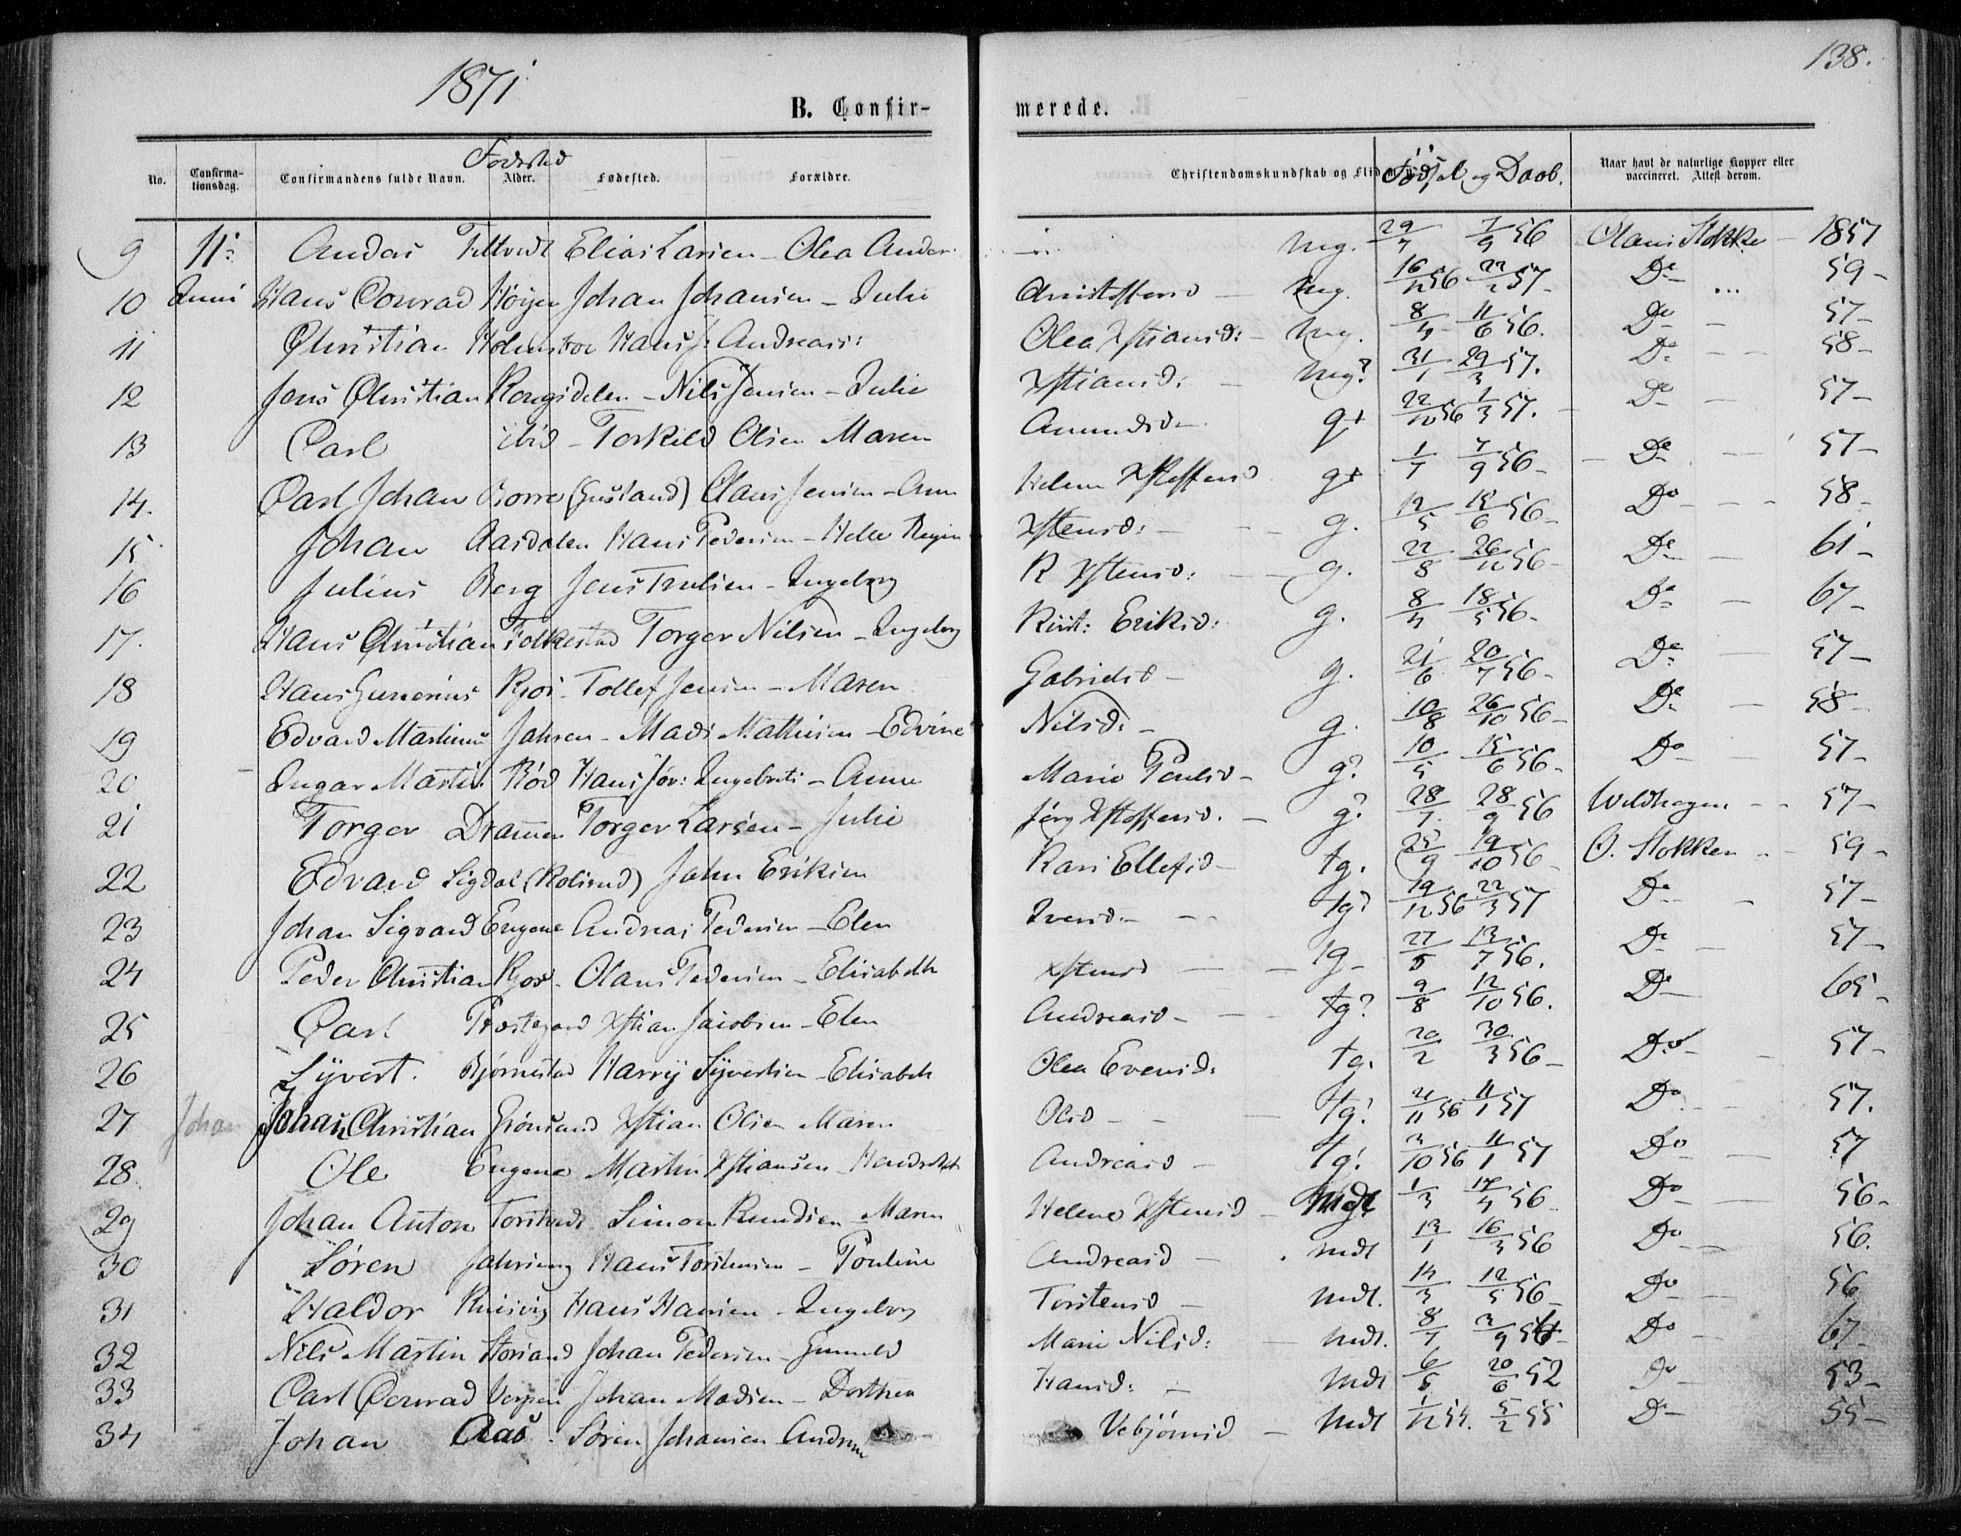 1871
138.
B. Confir- merede.
No. Confirmationsdag. Confirmandens fulde Navn. Fødested Alder. Fødested. Forældre. Christendomskundskab og Flid Fødsel og Daab. Naar havt de naturlige Kopper eller vaccineret. Attest derom.
9 11. Andas Eliei Larsen - Olea Anders mg. 29/7 7/9 56 Olaus Stokke - 1857
10 Juni Hans Conrad Høijen Johan Johansen - Julie Christoffersd - mg. 16/12 56 22/2 57 - Do 59 -
11 Christian Holmsboe Hans J. Andreass: Olea Xstiansd: - mg. 8/4 11/6 56. Do - 57 -
12 Jens Christian Nils Jensen - Julie Xstiansd. - mg? 31/1 29/3 57. Do - 58 -
13 Carl ibid - Torkild Olsen Maren Amundsd - g+ 22/10 56 1/3 57. - Do - 57 -
14. Carl Johan Borre Olaus Jensen - Ann Helene Xstoffersd g+ 1/7 7/9 56 - Do - 57 -
15 Johan Aasdalen Hans Pedersen - Helle Regin Xstensd: - g. 12/5 15/6 56 - Do - 58 -
16 Julius Berg Jens Trulsen - Ingeborg R Xstensd: - g. 22/8 26/12 56 - Do - 61 -
17. Hans Christian Folkestad Torger Nilsen - Ingeborg Kirst: Eriksd: g. 8/4 18/5 56 - Do - 67 -
18 Hans Gunerius Kjos - Tollef Jensen - Maren Gabrielsd - g. 21/6 20/7 56 - Do - 57 -
19 Edvard Martinius Jahren - Mads Mathisen - Edvine Nilsd: - g. 10/8 26/10 56 - Do - 58 -
20 Ingar Martin Rød Hans Jør: Ingebrets - Anne Marie Poulsd - g? 10/5 15/6 56 - Do - 57 -
21 Torger Drammen Torger Larsen - Julie Jørg Xstoffersd. - g? 28/7. 28/9 56 Wildhagen - 57 -
22 Edvard Sigdal (Kolsrud) John Eriksen Kari Ellefsd - tg. 25/9 19/10 56 - O. Stokken - 59 -
23 Johan Sigvard Eugene Andreas Pedersen - Elen Iversd. - tg? 19/12 56 22/3 57 Do - 57 -
24 Peder Christian Kjos - Olaus Pedersen - Elisabeth Xstensd - tg - 27/5 13/7 56. Do - 57 -
25 Carl Præstegaard Xstian Jacobsen - Elen Andreasd - tg? 9/8 12/10 56. Do - 65 -
26 Syvert. Bjørnstad Harrij Syvertsen - Elisabeth Olea Evensd: tg. 20/2 30/3 56 - Do - 57 -
27 Johan Johan Christian Grønsand Xstian Olsen Maren Olsd - tg? 21/11 56 11/1 57 Do - 57.
28 Ole Eugene Martin Xstiansen - Andreasd - tg! 3/10 56 11/1 57 Do - 57
29 Johan Anton Simon Knudsen - Maren Helene Xstensd - mdt 1/3 17/4 56 - Do - 56 -
30 Søren Hans Torstensen - Pouline Andreasd - mdt 13/1 16/3 56 Do - 56.
31 Haldor Hans Hansen - Ingeborg Torstensd - mdt. 14/3 12/5 56 - Do - 56
32 Nils Martin Storsand Johan Pedersen - Gunnild Marie Nilsd: - mdt. 8/7 3/9 54 - Do - 67 -
33 Carl Conrad Verpen Johan Madsen - Dorthea Hansd: - mdt 6/5 20/6 52 Do - 53 -
34 Johan Aas - Søren Johansen - Vebjørnsd - mdt 1/12 54. 5/2 55 Do - 55 -